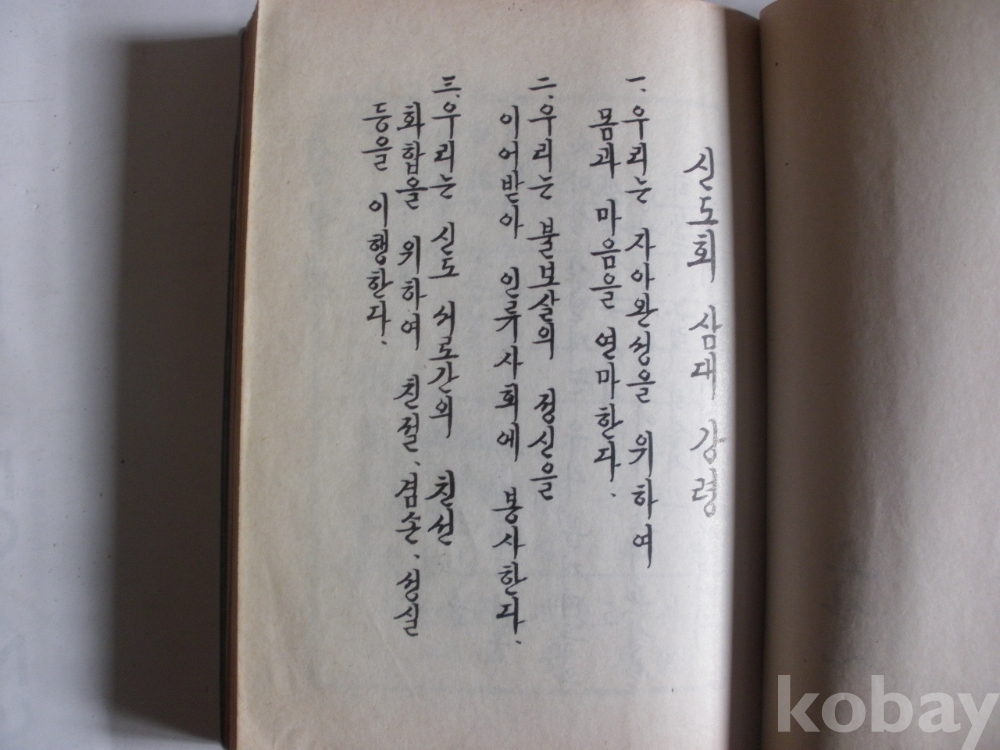 신도회 삼대 강령
一. 우리는 자아완성을 위하여
몸과 마음을 연마한다.
二. 우리는 불보살의 정신을
이어받아 인류사회에 봉사한다.
三. 우리는 신도 서로간의 친선
화합을 위하여 친절、겸손、성실
등을 이행한다.
kobay